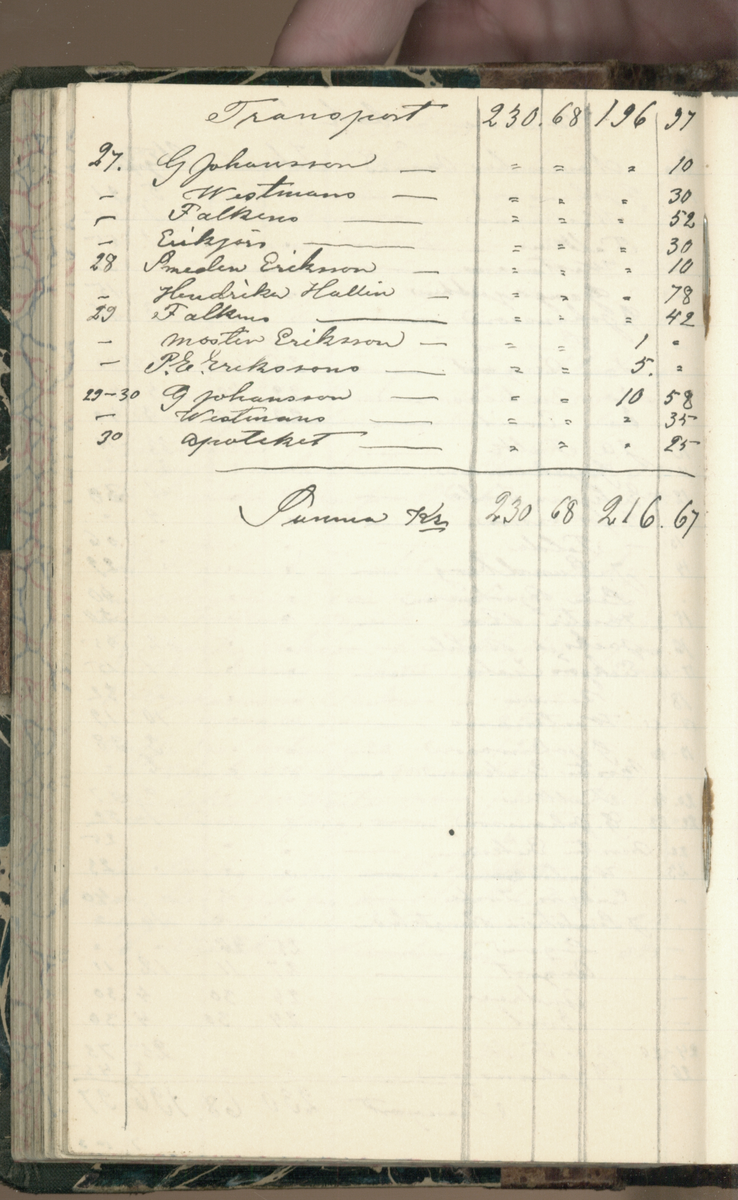 Transport 230.68 196 97
27. G Johansson — " " " 10
– Westmans — " " " 30
– Falkens — " " " 52
– Erikjors — " " " 30
28 Smeden Eriksson — " " " 10
– Hendrika Hallin — " " " 78
29 Falkens — " " " 42
– Mostin Eriksson — " " 1 "
– P.E. Erikssons — " " 5. "
29–30 G Johansson — " " 10 58
– Westmans — " " " 35
30 Apoteket — " " " 25
Summa Kr 230 68 216.67